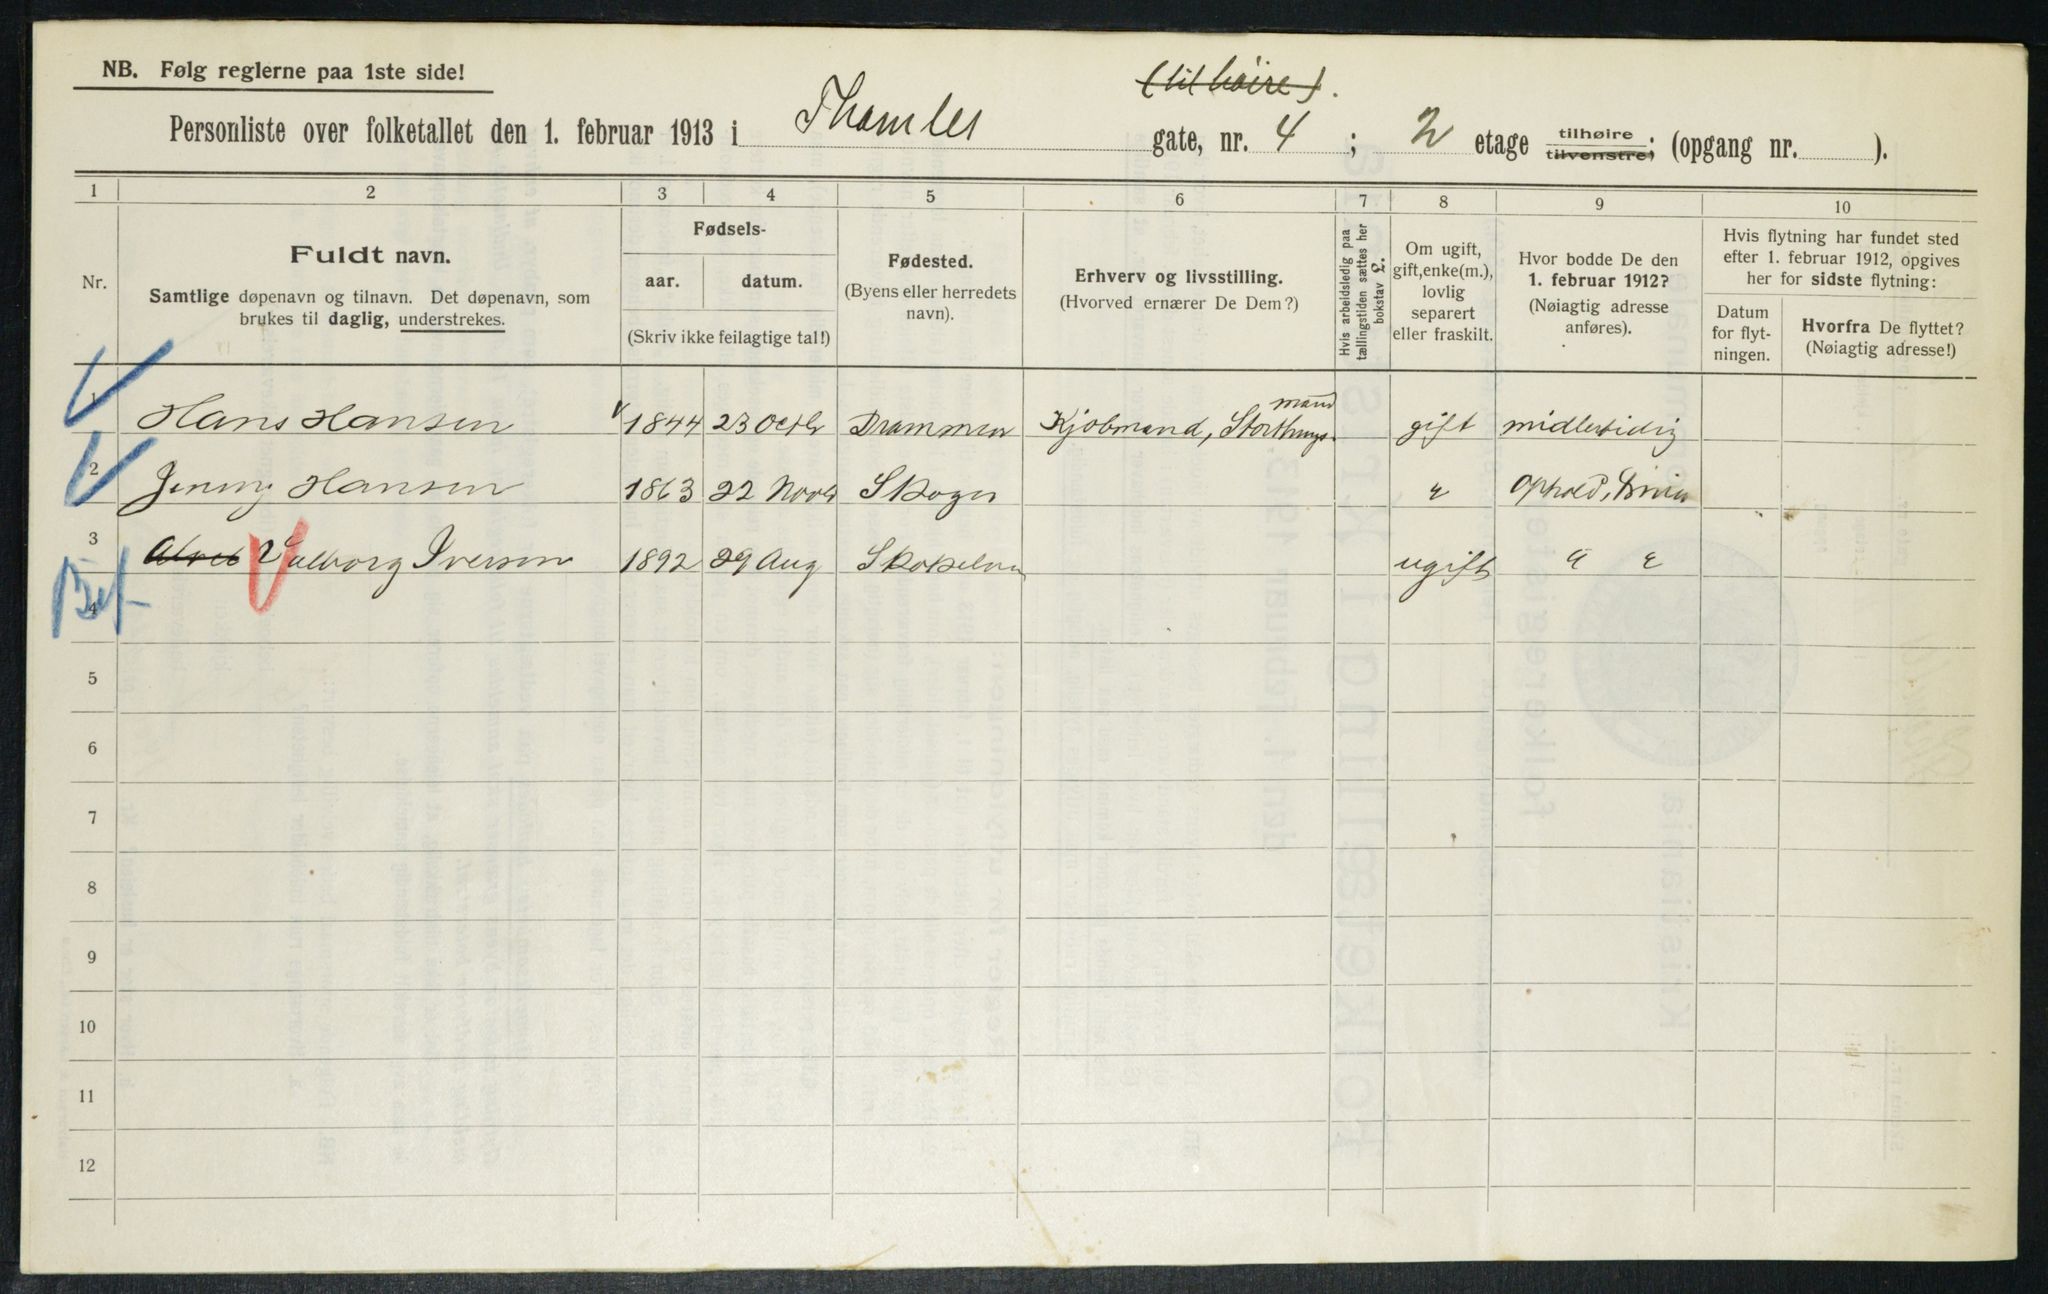 NB. Følg reglerne paa 1ste side!
(til høire).
Personliste over folketallet den 1. februar 1913 i Thamles gate, nr. 4 ; 2 etage tilhøire tilvenstre; (opgang nr. ).
1 2 3 4 5 6 7 8 9 10
Nr.
Fuldt navn.
Samtlige døpenavn og tilnavn. Det døpenavn, som
brukes til daglig, understrekes.
Fødsels-
aar. datum.
(Skriv ikke feilagtige tal!)
Fødested.
(Byens eller herredets
navn).
Erhverv og livsstilling.
(Hvorved ernærer De Dem?)
Hvis arbeidsledig paa
tællingstiden sættes her
bokstav L.
Om ugift,
gift, enke(m.),
lovlig
separert
eller fraskilt.
Hvor bodde De den
1. februar 1912?
(Nøiagtig adresse
anføres).
Hvis flytning har fundet sted
efter 1. februar 1912, opgives
her for sidste flytning:
Datum
for flyt-
ningen.
Hvorfra De flyttet?
(Nøiagtig adresse!)
1 Hans Hansen 1844 23 Octb Drammen Kjøbmand, Storthings mand gift midlertidig
2 Jenny Hansen 1863 22 Novb Skoger " Ophold,
3 Valborg Iversen 1892 29 Aug ugift " "
4
5
6
7
8
9
10
11
12